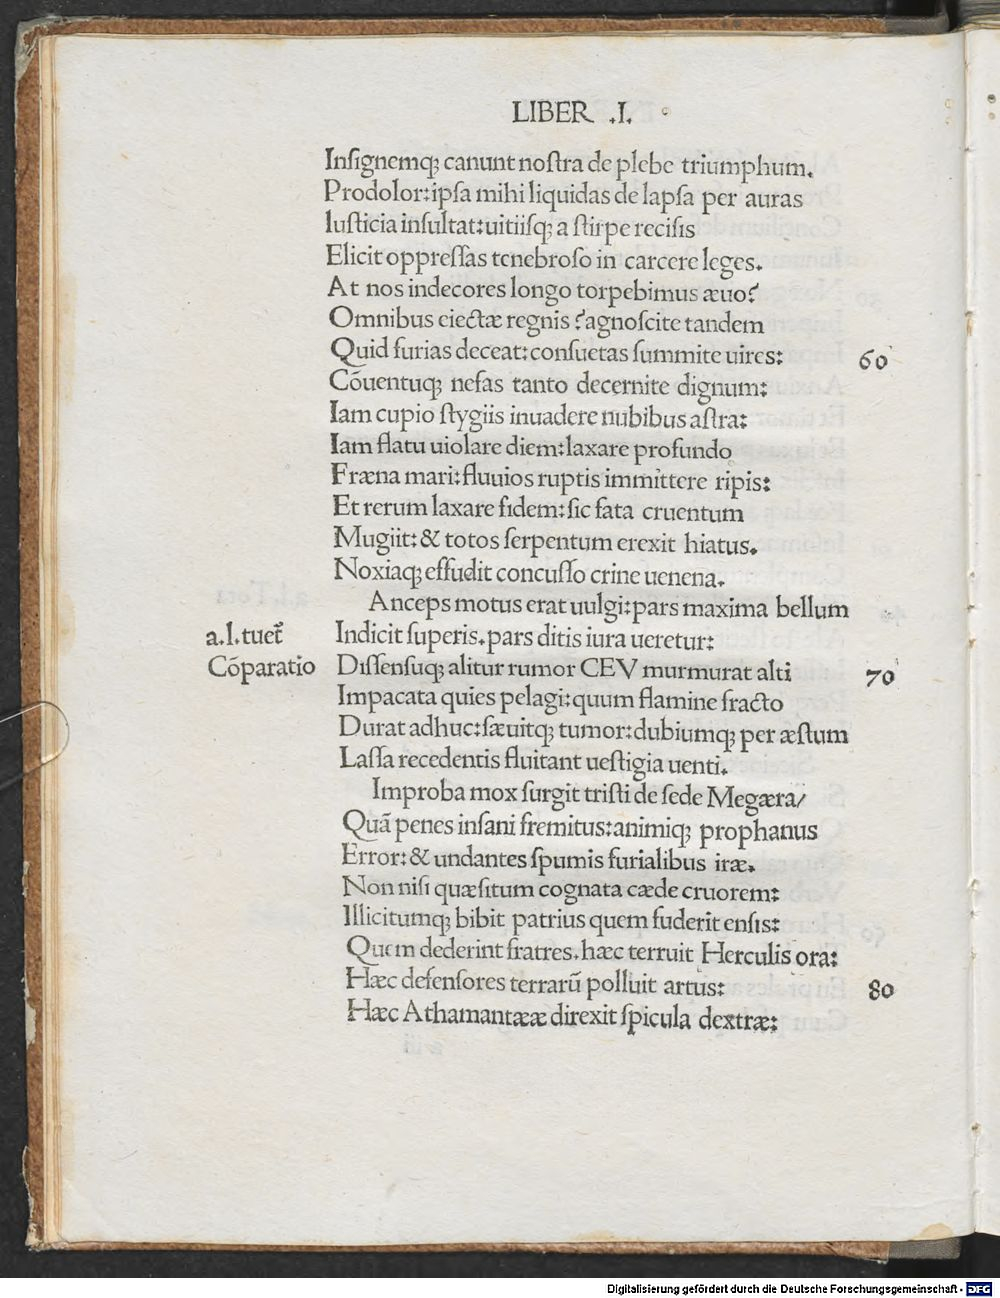 LIBER .I.
Insignemq; canunt nostra de plebe triumphum.
Prodolor:ipsa mihi liquidas de lapsa per auras
Iusticia insultat:uitiisq; a stirpe recisis
Elicit oppressas tenebroso in carcere leges.
At nos indecores longo torpebimus æuo?
Omnibus eiectæ regnis ?agnoscite tandem
Quid furias deceat:consuetas summite uires: 60
Cōuentuq; nefas tanto decernite dignum:
Iam cupio stygiis inuadere nubibus astra:
Iam flatu uiolare diem:laxare profundo
Fræna mari:fluuios ruptis immittere ripis:
Et rerum laxare fidem:sic fata cruentum
Mugiit:& totos serpentum erexit hiatus.
Noxiaq; effudit concusso crine uenena.
Anceps motus erat uulgi:pars maxima bellum
a.l.tuet̄ Indicit superis.pars ditis iura ueretur:
Cōparatio Dissensuq; alitur rumor CEV murmurat alti 70
Impacata quies pelagi:quum flamine fracto
Durat adhuc:sæuitq; tumor:dubiumq; per æstum
Lassa recedentis fluitant uestigia uenti.
Improba mox surgit tristi de sede Megæra/
Quā penes insani fremitus:animiq; prophanus
Error:& undantes spumis furialibus iræ.
Non nisi quæsitum cognata cæde cruorem:
Illicitumq; bibit patrius quem fuderit ensis:
Quem dederint fratres.hæc terruit Herculis ora:
Hæc defensores terrarū polluit artus: 80
Hæc Athamantææ direxit spicula dextræ:
Digitalisierung gefördert durch die Deutsche Forschungsgemeinschaft - DFG